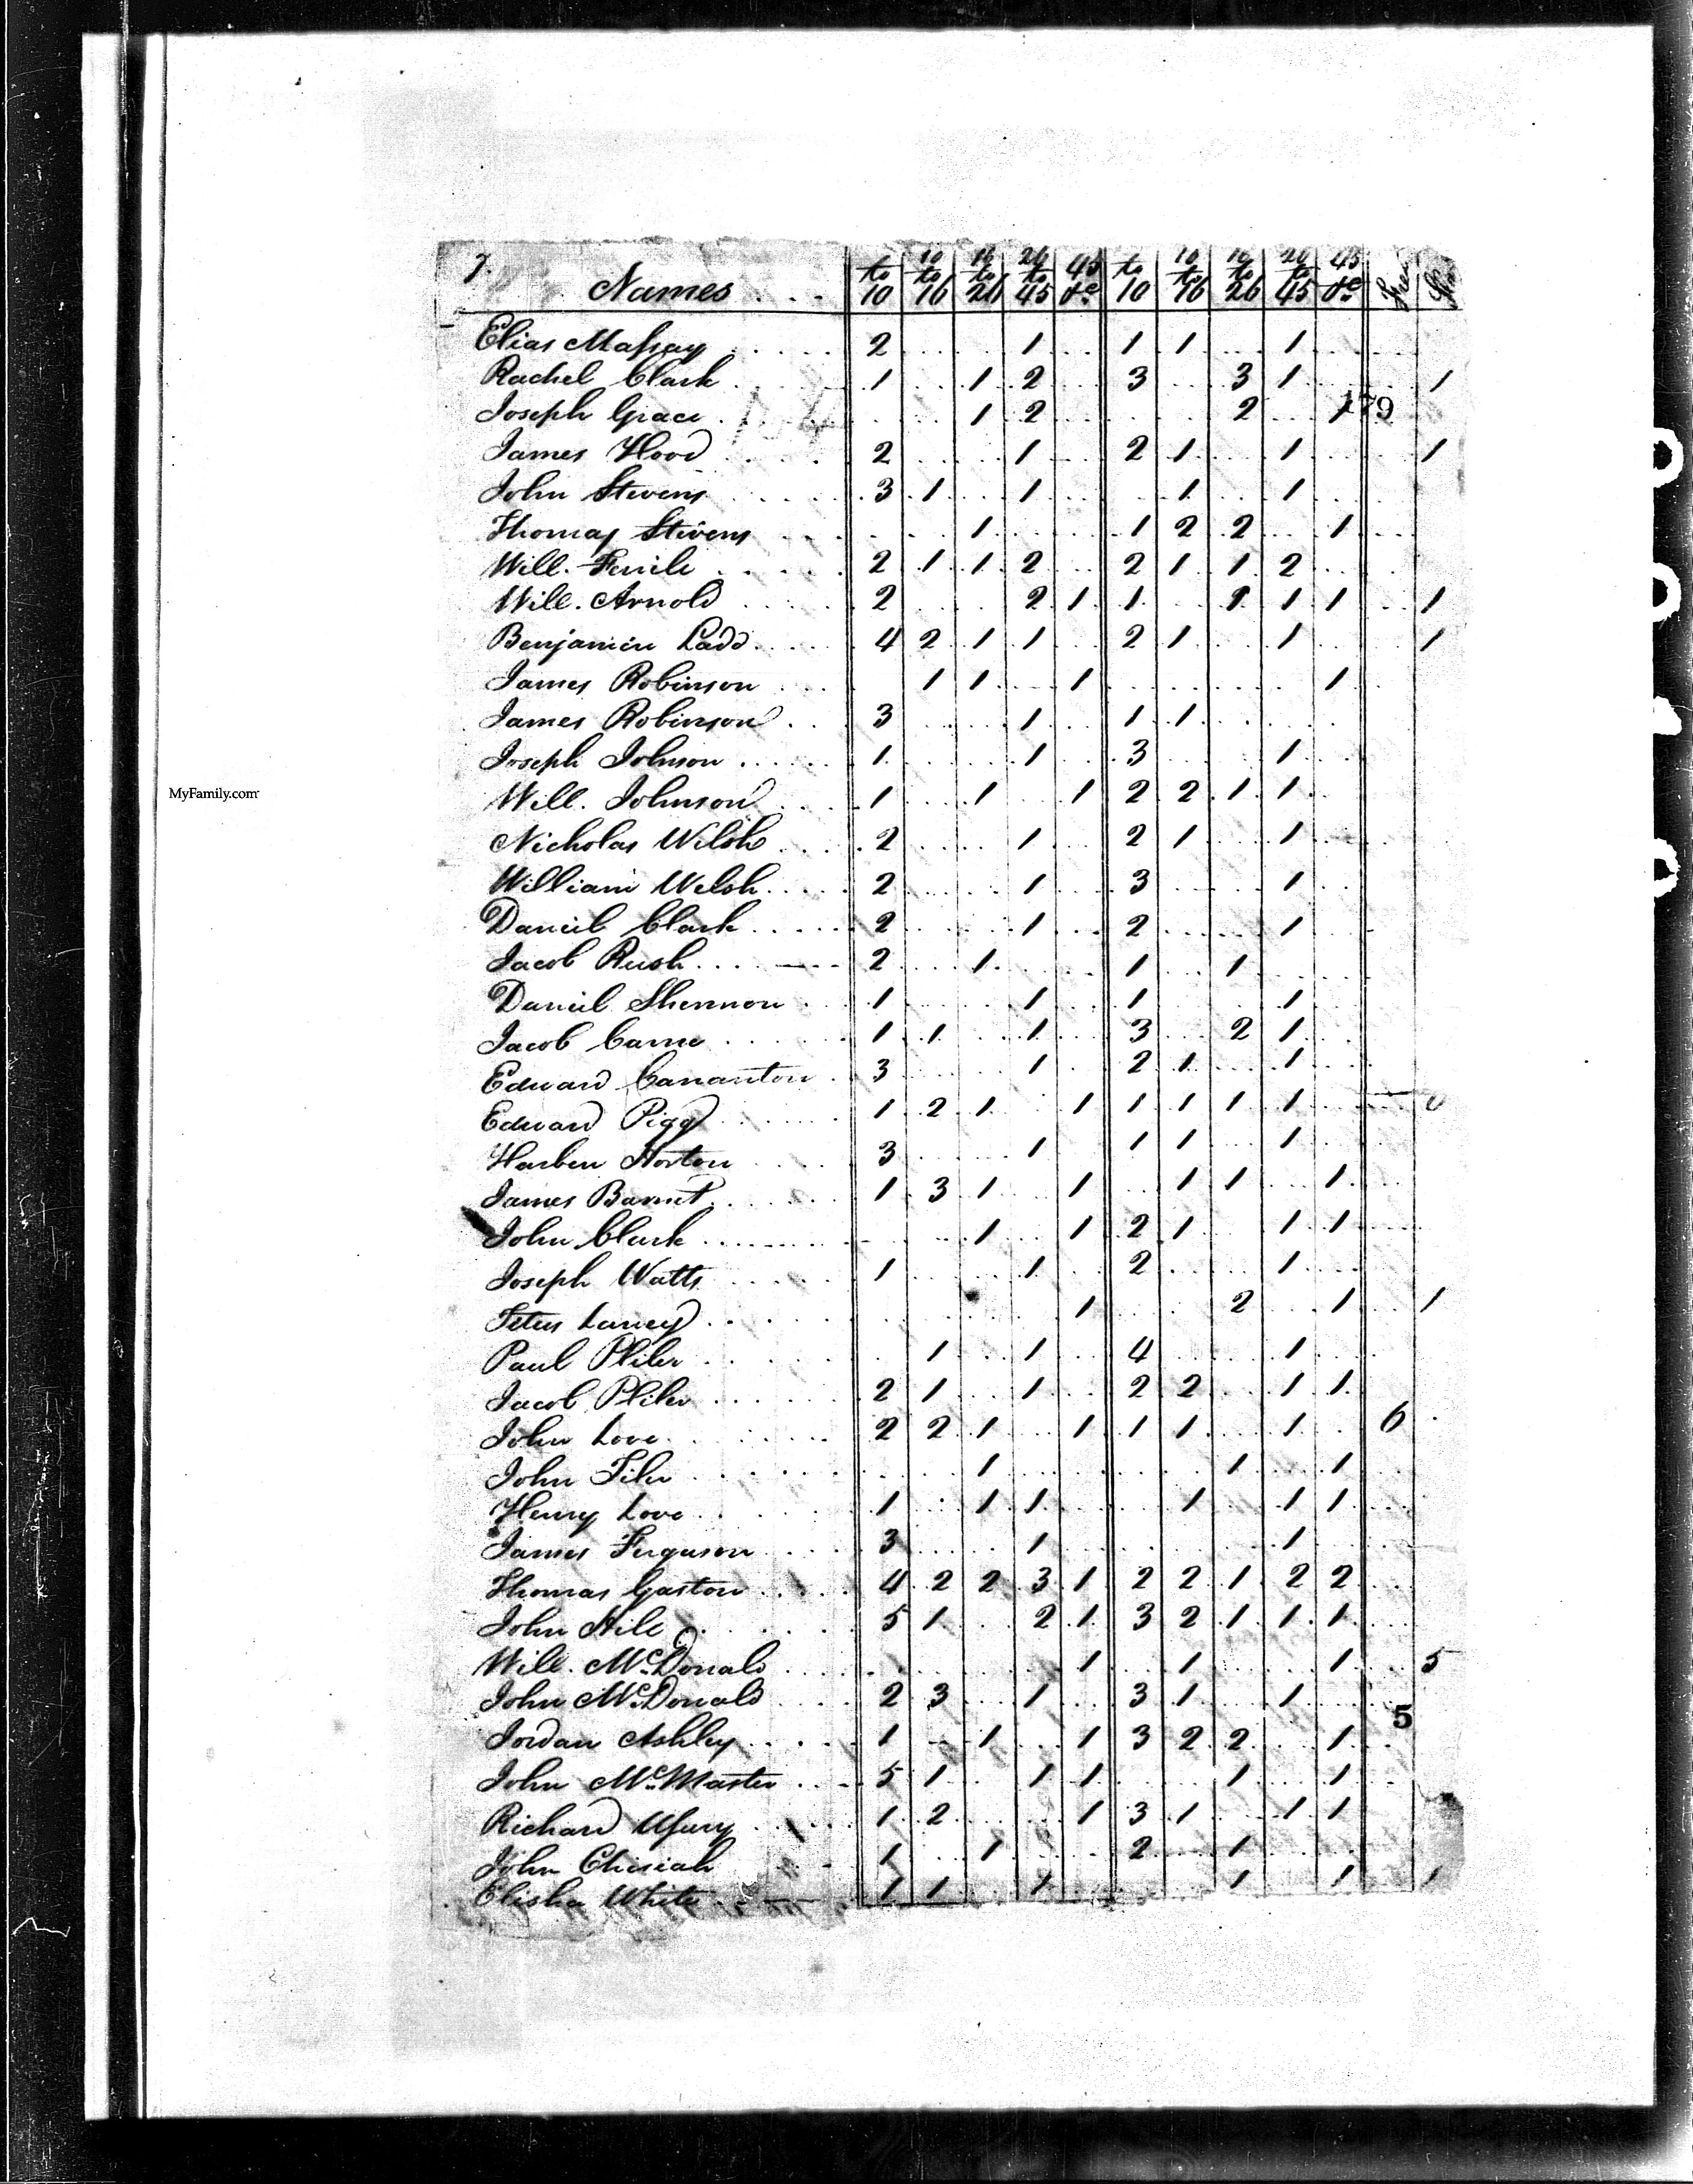 7. Names to 10 10 to 16 16 to 26 26 to 45 45 &c to 10 10 to 16 16 to 26 26 to 45 45 &c Free
Elias Massay 2 1 1 1 1
Rachel Clark 1 1 2 3 3 1 1
Joseph Grace 1 2 2 1 179
James Hood 2 1 2 1 1 1
John Stevens 3 1 1 1 1
Thomas Stevens 1 1 2 2 1
Will. 2 1 1 2 2 1 1 2
Will. Arnold 2 2 1 1 1 1 1
Benjamin Ladd 4 2 1 1 2 1 1 1
James Robinson 1 1 1 1
James Robinson 3 1 1 1
Joseph Johnson 1 1 3 1
MyFamily.com
Will. Johnson 1 1 1 2 2 1 1
Nicholas Welsh 2 1 2 1 1
William Welsh 2 1 3 1
Daniel Clark 2 1 2 1
Jacob Rush 2 1 1 1
Daniel Shennon 1 1 1 1
Jacob 1 1 1 3 2 1
Edward 3 1 2 1 1
Edward Pigg 1 2 1 1 1 1 1 1
Harben Horton 3 1 1 1 1
James Barnet 1 3 1 1 1 1 1
John Clark 1 1 2 1 1 1
Joseph Watts 1 1 2 1
Titus Laney 1 2 1 1
Paul Pliler 1 1 4 1
Jacob Pliler 2 1 1 2 2 1 1
John Love 2 2 1 1 1 1 1 6
John 1 1 1
Henry Love 1 1 1 1 1 1
James Ferguson 3 1 1
Thomas Gaston 4 2 2 3 1 2 2 1 2 2
John Hill 5 1 2 1 3 2 1 1 1
Will. McDonald 1 1 1 5
John McDonald 2 3 1 3 1 1
5
Jordan Ashley 1 1 1 3 2 2 1
John McMaster 5 1 1 1 1 1
Richard 1 2 1 3 1 1 1
John 1 1 2 1
Elisha White 1 1 1 1 1 1